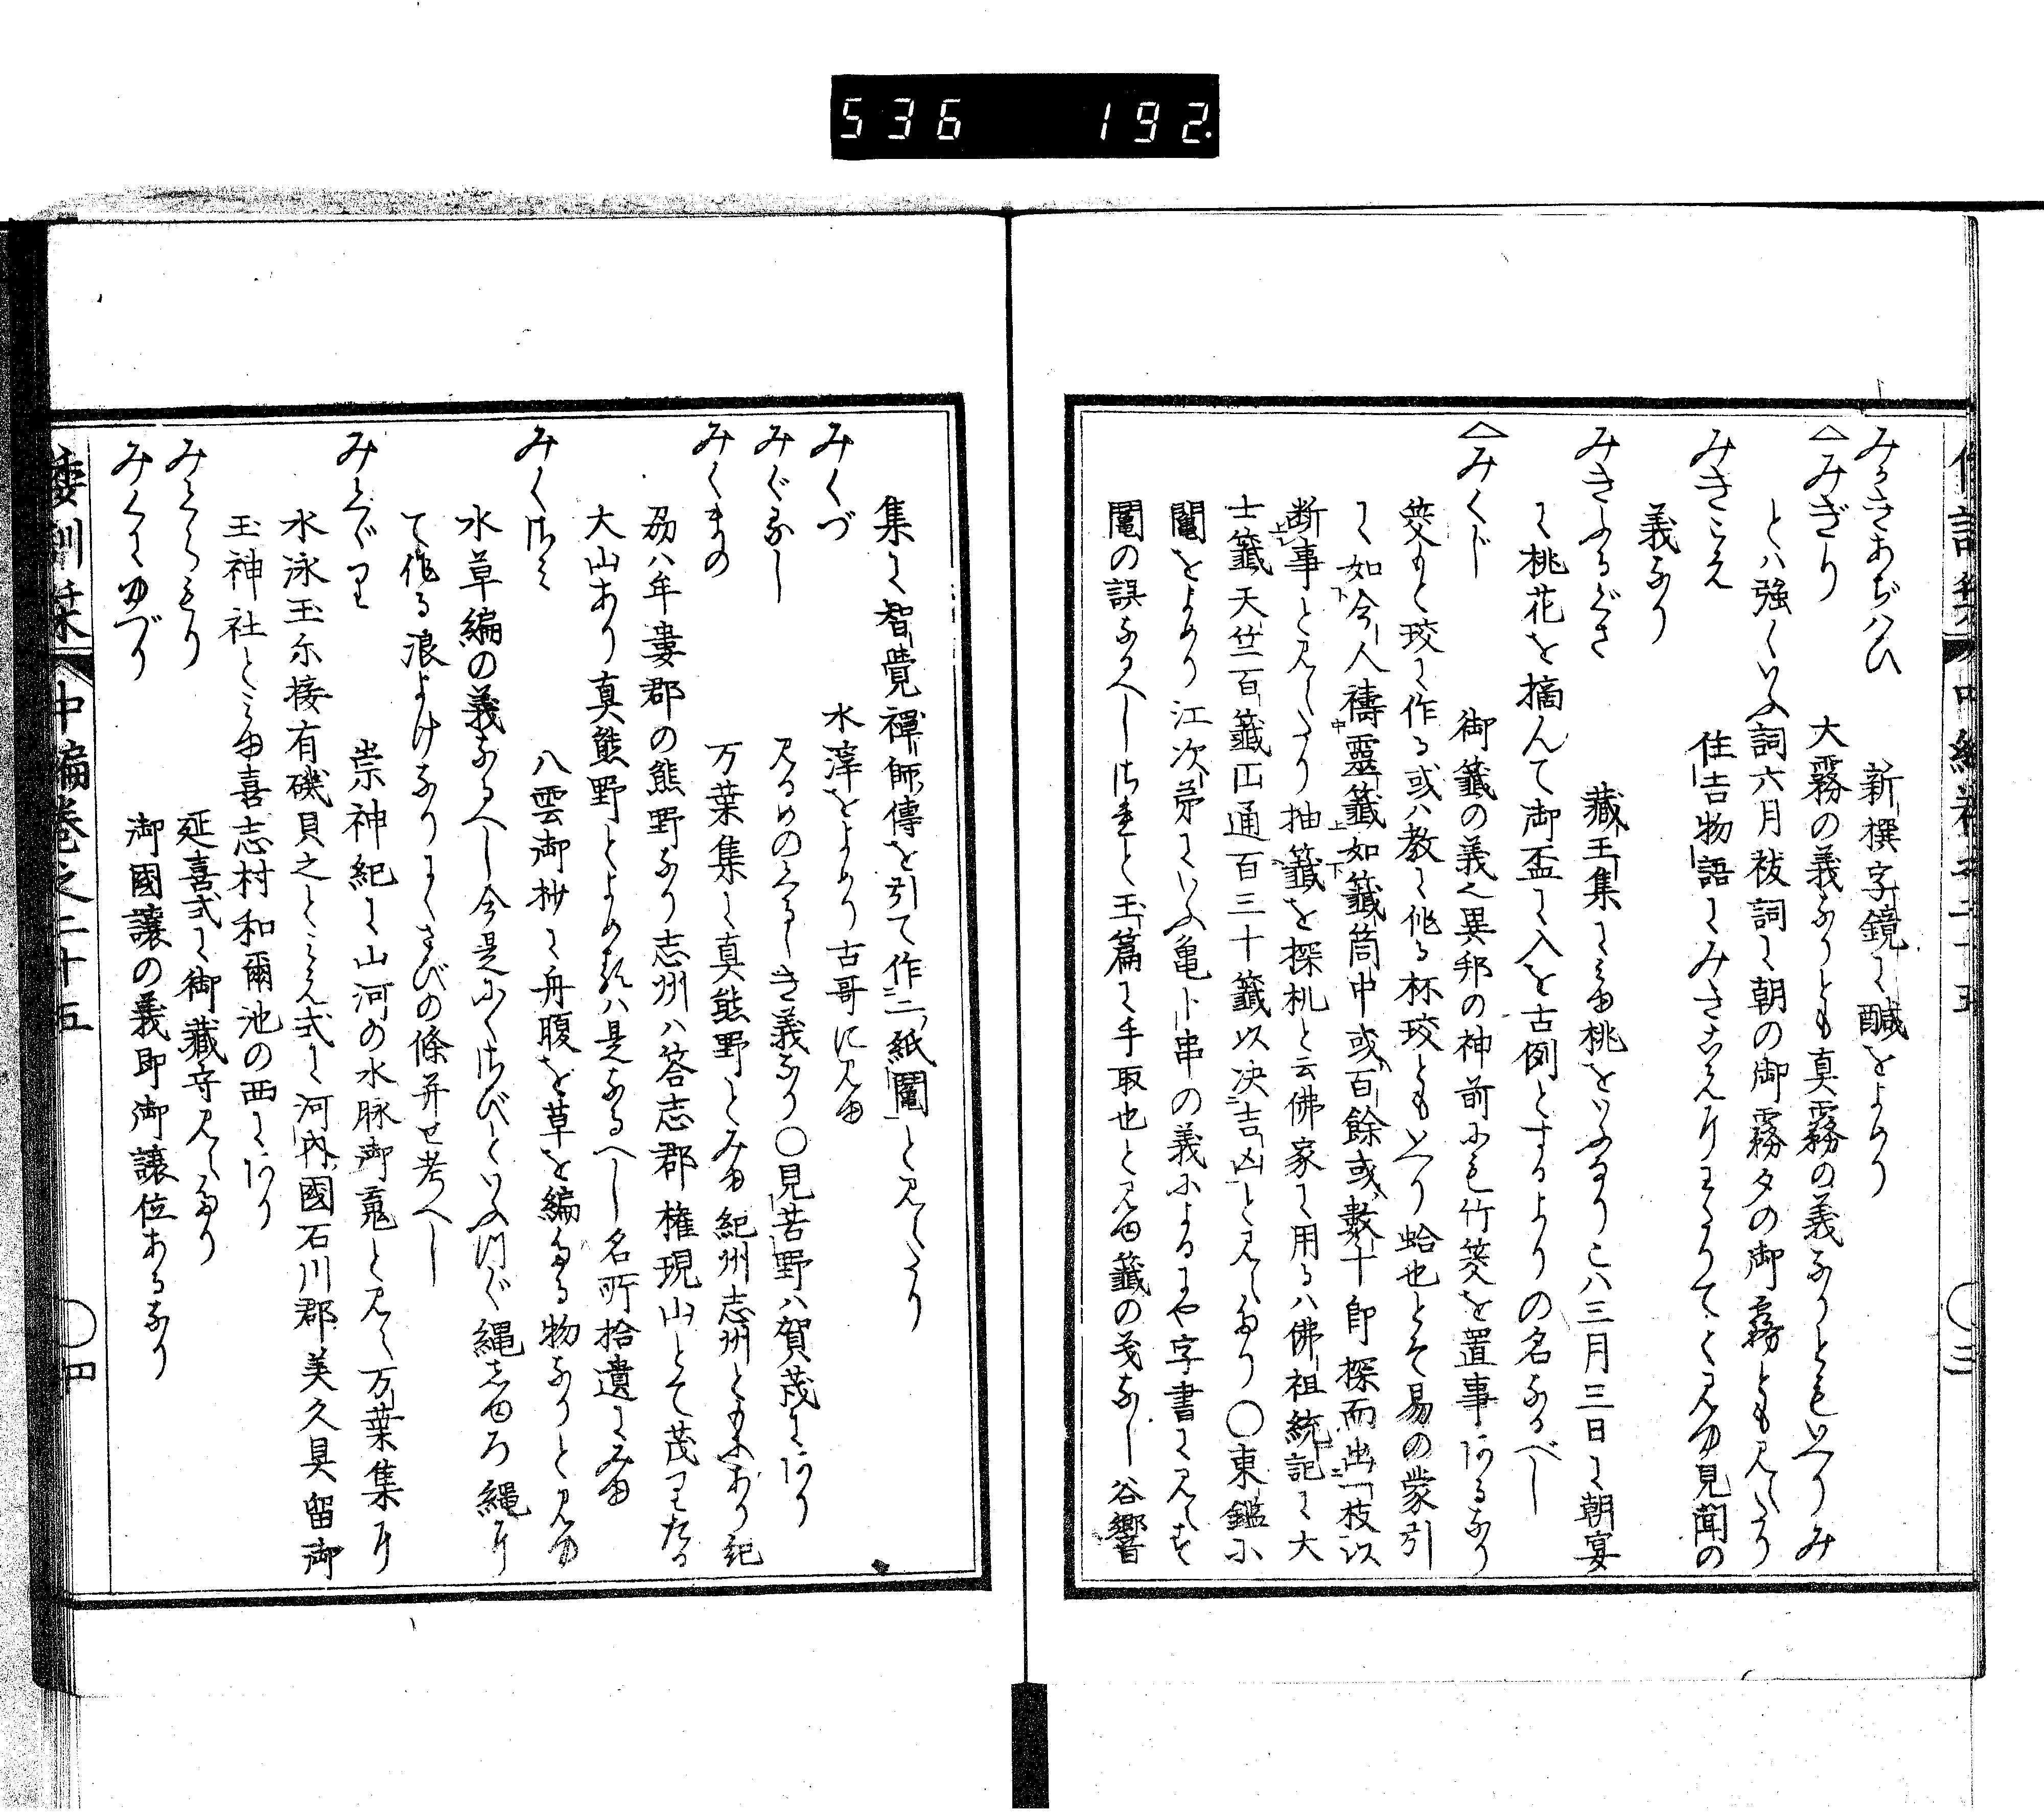 536 192.
みかきあぢハひ 新撰字鏡に醎をよめり
△みぎり 大霧の義なりとも真霧の義なりともいへりみ
とハ強くいふ詞六月祓詞に朝の御霧夕の御霧とも見えたり
みきこえ 住吉物語にみきこえけりとてと見ゆ見聞の
義なり
みきふるぐさ 藏玉集にみゆ桃をいふなりこハ三月三日に朝宴
に桃花を摘んて御盃に入を古例とするよりの名なるべし
△みくじ 御籤の義之異邦の神前にも竹筊を置事あるなり
筊もと珓に作る或ハ教に作る杯珓ともいへり蛤也とそ易の蒙引
に如今人禱靈籤如籤筒中或百餘或數十即探而出一枝以
断事と見えたり抽籤を探札と云佛家に用るハ佛祖統記に大
士籤天竺百籤正通百三十籤以决吉凶と見えたり〇東鑑に
鬮をよめり江次第にいふ亀卜串の義によるにや字書に見えず
鬮の誤なるべしされと玉篇に手取也と見ゆ籤の義なし谷響
集に智覺禪師傳を引て作二紙鬮と見えたり
みくづ 水滓をよめり古哥に見ゆ
みぐるし 見るめのくるしき義なり〇見苦野ハ賀茂にあり
みくまの 万葉集に真熊野とみゆ紀州志州ともにあり紀
州ハ牟婁郡の熊野なり志州ハ荅志郡権現山とて茂りたる
大山あり真熊野とよめるハ是なるへし名所拾遺にみゆ
みくさミ 八雲御抄に舟腹を草を編たる物なりと見ゆ
水草編の義なるへし今是にくさびといふ川ぐ縄しゆろ縄にて
て作る浪よけなりにくさびの條并せ考へし
みくぐり 崇神紀に山河の水脉御竁と見え万葉集に
水泳玉尓接有磯貝之とミえ式に河内國石川郡美久具留御
玉神社とミゆ喜志村和爾池の西にあり
みくらもり 延喜式に御藏守見えたり
みくにゆづり 御國譲の義即御譲位あるなり
倭訓栞 中編巻之二十五 〇四